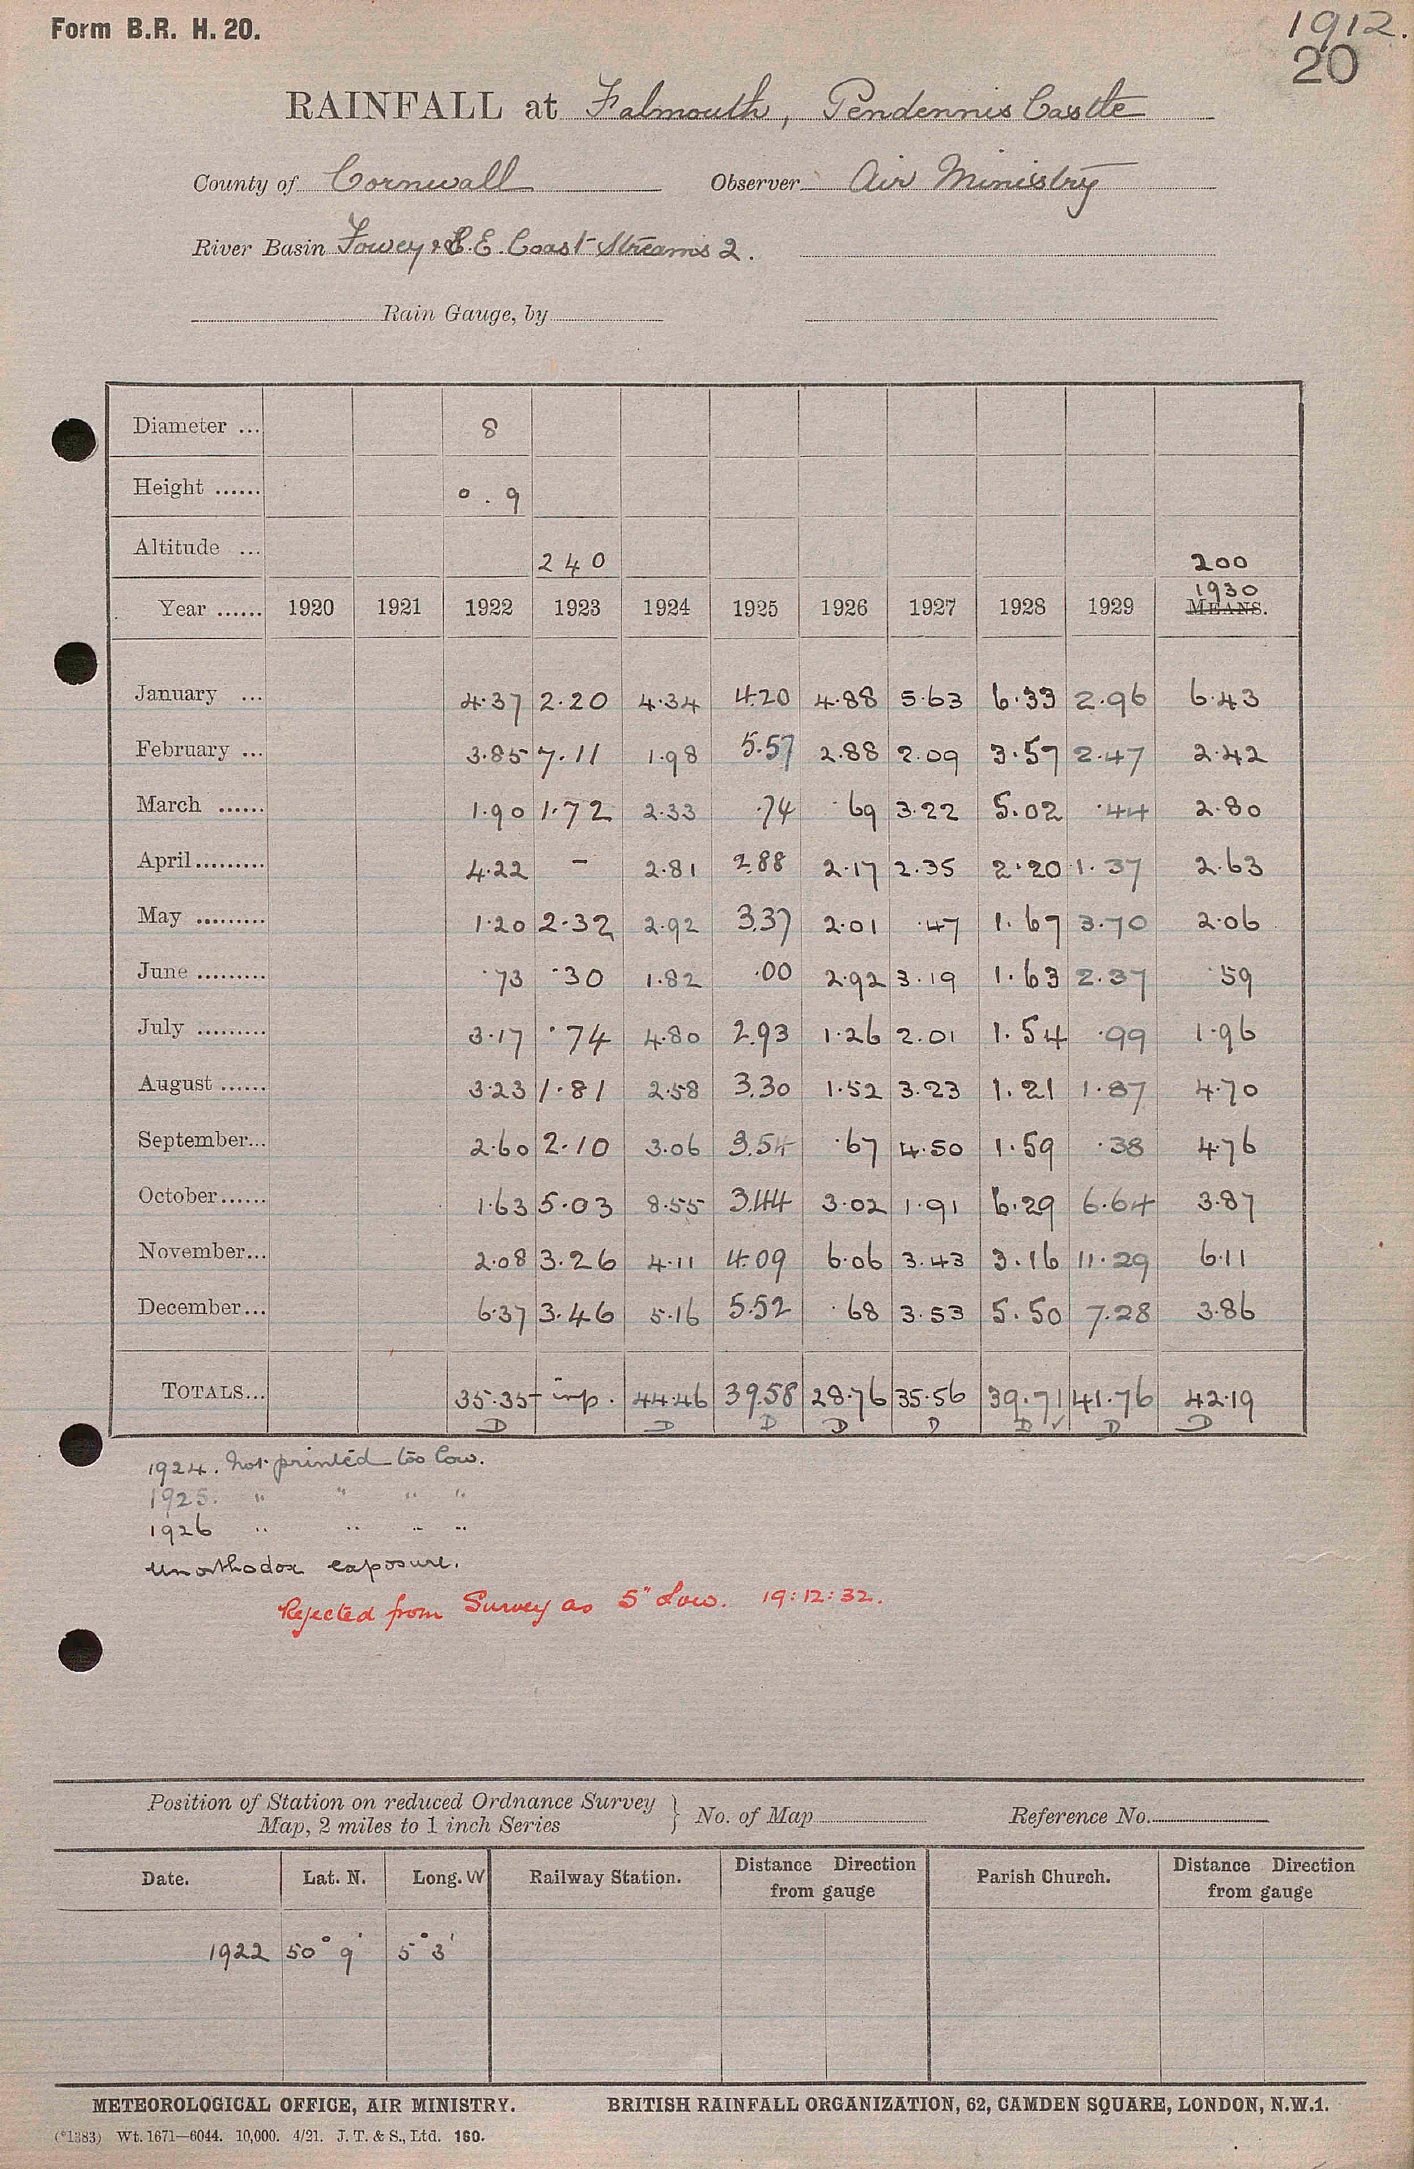 Form B.R. H. 20.
1912.
20
RAINFALL at Falmouth, Pendennis Castle
County of Cornwall Observer Air Ministry
River Basin Fowey & S.E. Coast Streams 2.
Rain Gauge, by
Diameter ... 8
Height ...... 0.9
Altitude ... 240 200
Year ...... 1920 1921 1922 1923 1924 1925 1926 1927 1928 1929 1930 MEANS.
January ... 4.37 2.20 4.34 4.20 4.88 5.63 6.33 2.96 6.43
February ... 3.85 7.11 1.98 5.57 2.88 2.09 3.57 2.47 2.42
March ...... 1.90 1.72 2.33 .74 .69 3.22 5.02 .44 2.80
April......... 4.22 - 2.81 2.88 2.17 2.35 2.20 1.37 2.63
May ......... 1.20 2.32 2.92 3.37 2.01 .47 1.67 3.70 2.06
June ......... .73 .30 1.82 .00 2.92 3.19 1.63 2.37 .59
July ......... 3.17 .74 4.80 2.93 1.26 2.01 1.54 .99 1.96
August ...... 3.23 1.81 2.58 3.30 1.52 3.23 1.21 1.87 4.70
September... 2.60 2.10 3.06 3.54 .67 4.50 1.59 .38 4.76
October...... 1.63 5.03 8.55 3.44 3.02 1.91 6.29 6.64 3.87
November... 2.08 3.26 4.11 4.09 6.06 3.43 3.16 11.29 6.11
December... 6.37 3.46 5.16 5.52 .68 3.53 5.50 7.28 3.86
TOTALS... 35.35 imp. 44.46 39.58 28.76 35.56 39.71 41.76 42.19
D D D D D D ✓ D D
1924. Not printed too low.
1925. " " " "
1926 " " " "
Unorthodox exposure.
Rejected from Survey as 5" Low. 19:12:32.
Position of Station on reduced Ordnance Survey
Map, 2 miles to 1 inch Series } No. of Map Reference No.
Date. Lat. N. Long. W Railway Station. Distance Direction from gauge Parish Church. Distance Direction from gauge
1922 50° 9' 5° 3'
METEOROLOGICAL OFFICE, AIR MINISTRY. BRITISH RAINFALL ORGANIZATION, 62, CAMDEN SQUARE, LONDON, N.W.1.
(*1383) Wt. 1671—6044. 10,000. 4/21. J. T. & S., Ltd. 160.